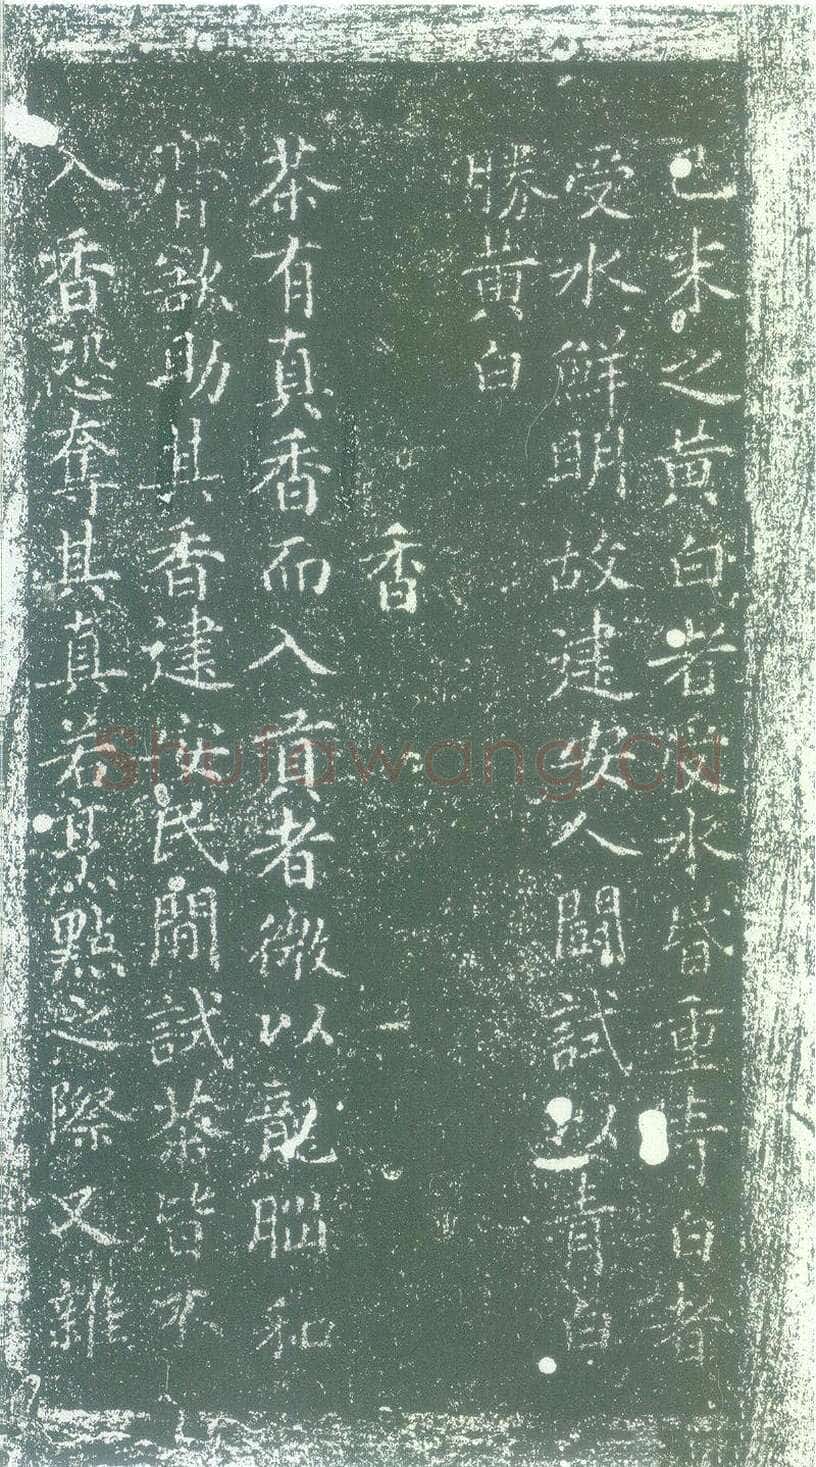 已末之黃白者受水昏重青白者
受水鮮明故建安人鬪試以青白
勝黃白
香
茶有真香而入貢者微以龍腦和
膏欲助其香建安民間試茶皆不
入香恐奪其真若烹點之際又雜
Shufawang.CN